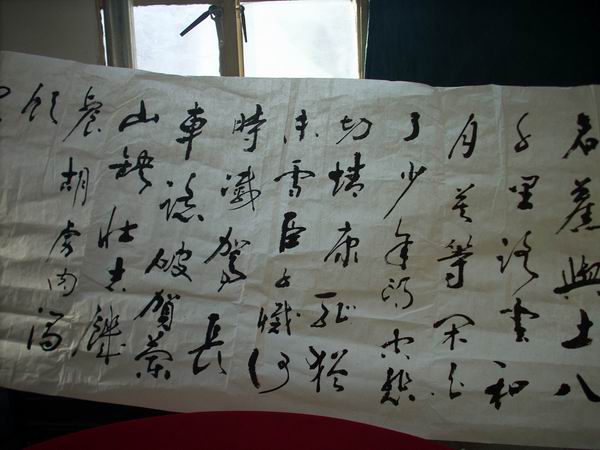 名塵與土八
千里路雲和
月莫等闲白
了少年頭空悲
切靖康恥猶
未雪臣子憾何
時滅駕長
車踏破賀蘭
山缺壯志饑
餐胡虜肉